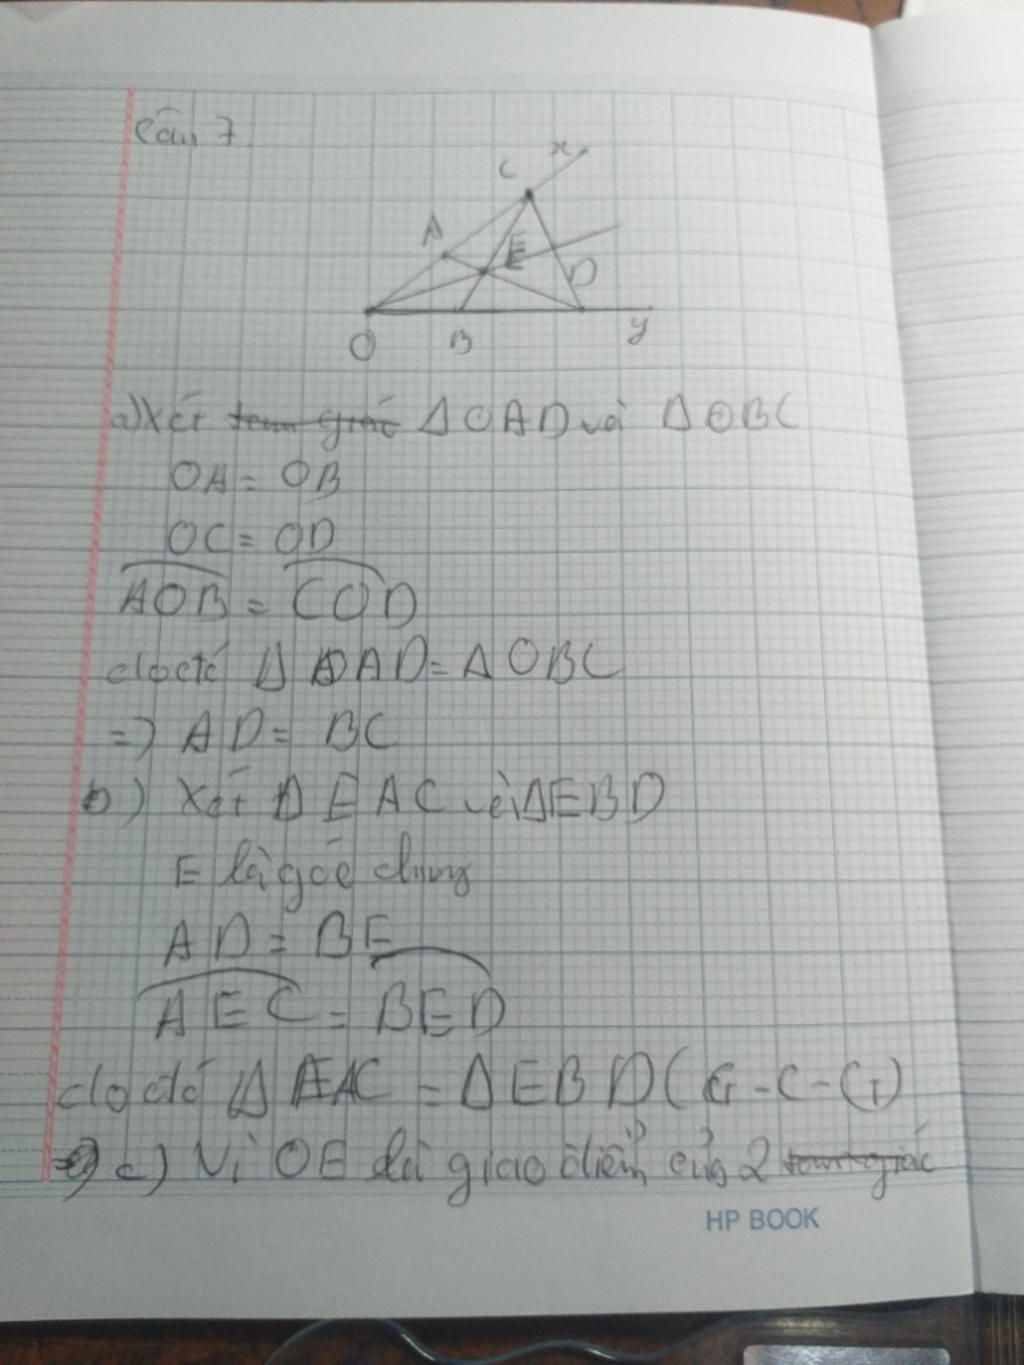 Câu 7
x
C
A
E
D
O
B
y
a) Xét tam giác Δ OAD và Δ OBC
OA = OB
OC = OD
AOB = COD
do đó Δ OAD = Δ OBC
=) AD = BC
b) Xét Δ EAC và Δ EBD
E là góc chung
AD = BE
AEC = BED
do đó Δ EAC = Δ EBD (G-C-G)
c) Vì OE là giao điểm của 2 tam giác
HP BOOK